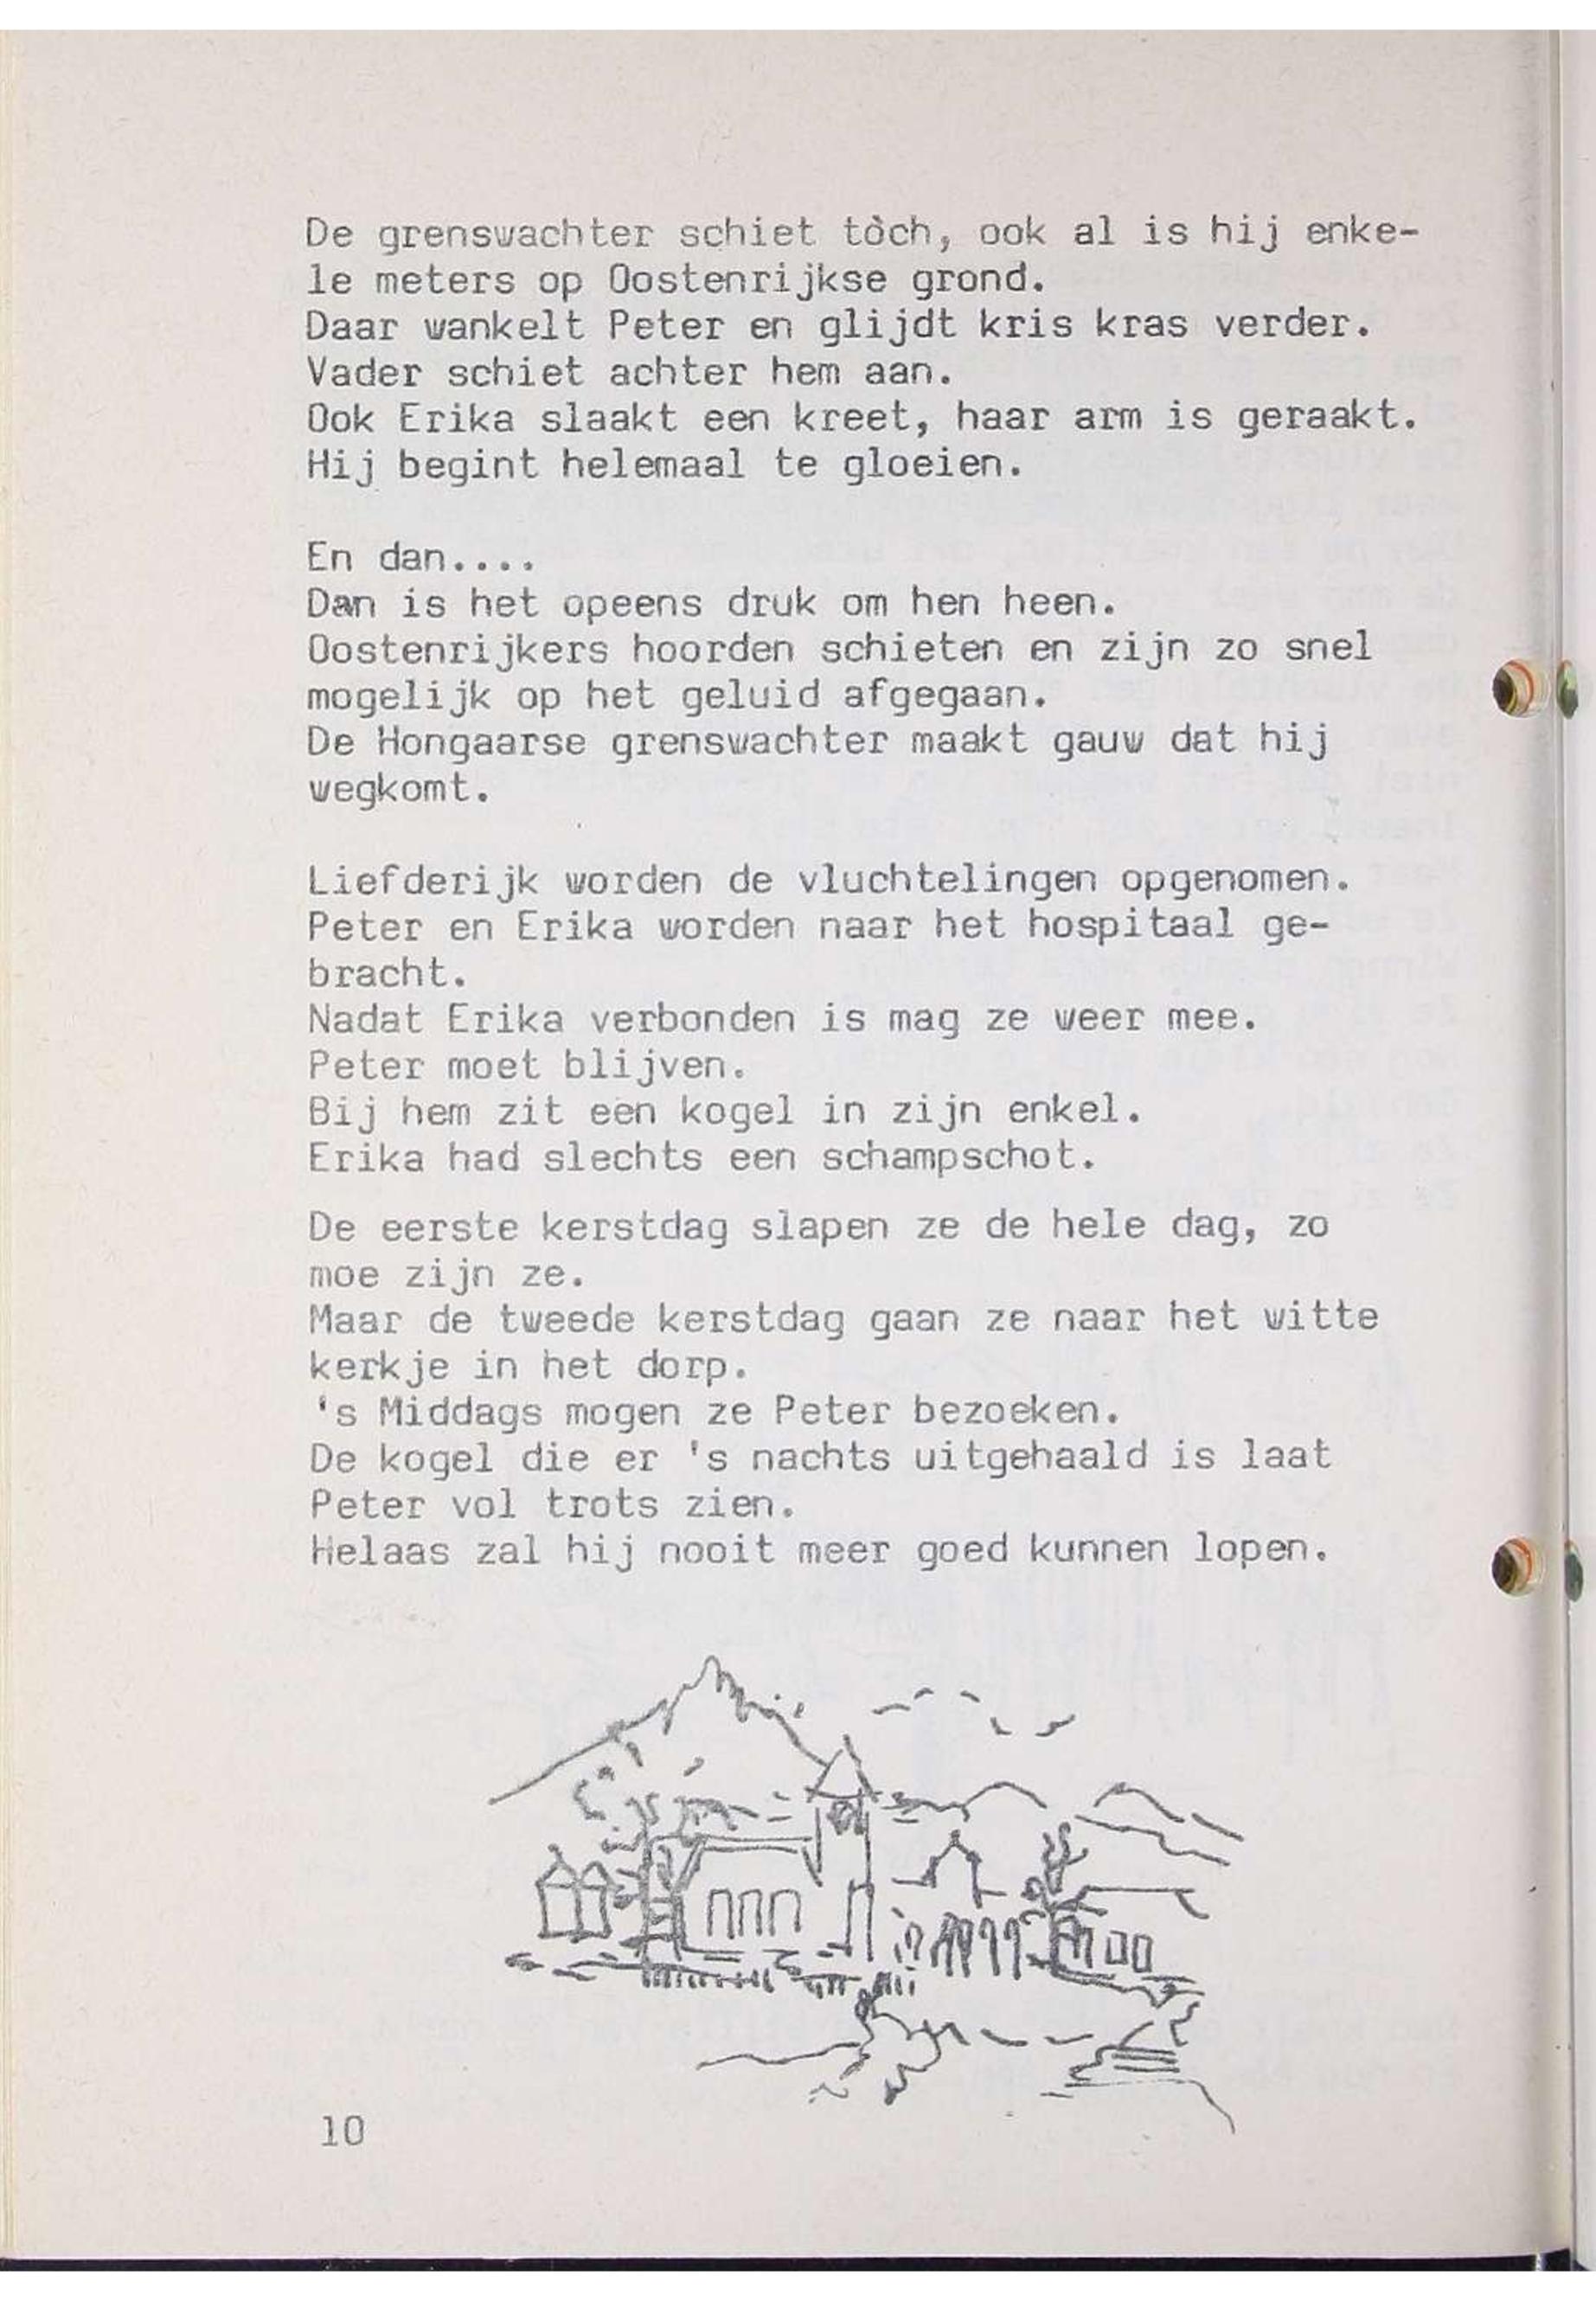 De grenswachter schiet tòch, ook al is hij enke-
le meters op Oostenrijkse grond.
Daar wankelt Peter en glijdt kris kras verder.
Vader schiet achter hem aan.
Ook Erika slaakt een kreet, haar arm is geraakt.
Hij begint helemaal te gloeien.

En dan....
Dan is het opeens druk om hen heen.
Oostenrijkers hoorden schieten en zijn zo snel
mogelijk op het geluid afgegaan.
De Hongaarse grenswachter maakt gauw dat hij
wegkomt.

Liefderijk worden de vluchtelingen opgenomen.
Peter en Erika worden naar het hospitaal ge-
bracht.
Nadat Erika verbonden is mag ze weer mee.
Peter moet blijven.
Bij hem zit een kogel in zijn enkel.
Erika had slechts een schampschot.

De eerste kerstdag slapen ze de hele dag, zo
moe zijn ze.
Maar de tweede kerstdag gaan ze naar het witte
kerkje in het dorp.
's Middags mogen ze Peter bezoeken.
De kogel die er 's nachts uitgehaald is laat
Peter vol trots zien.
Helaas zal hij nooit meer goed kunnen lopen.

10